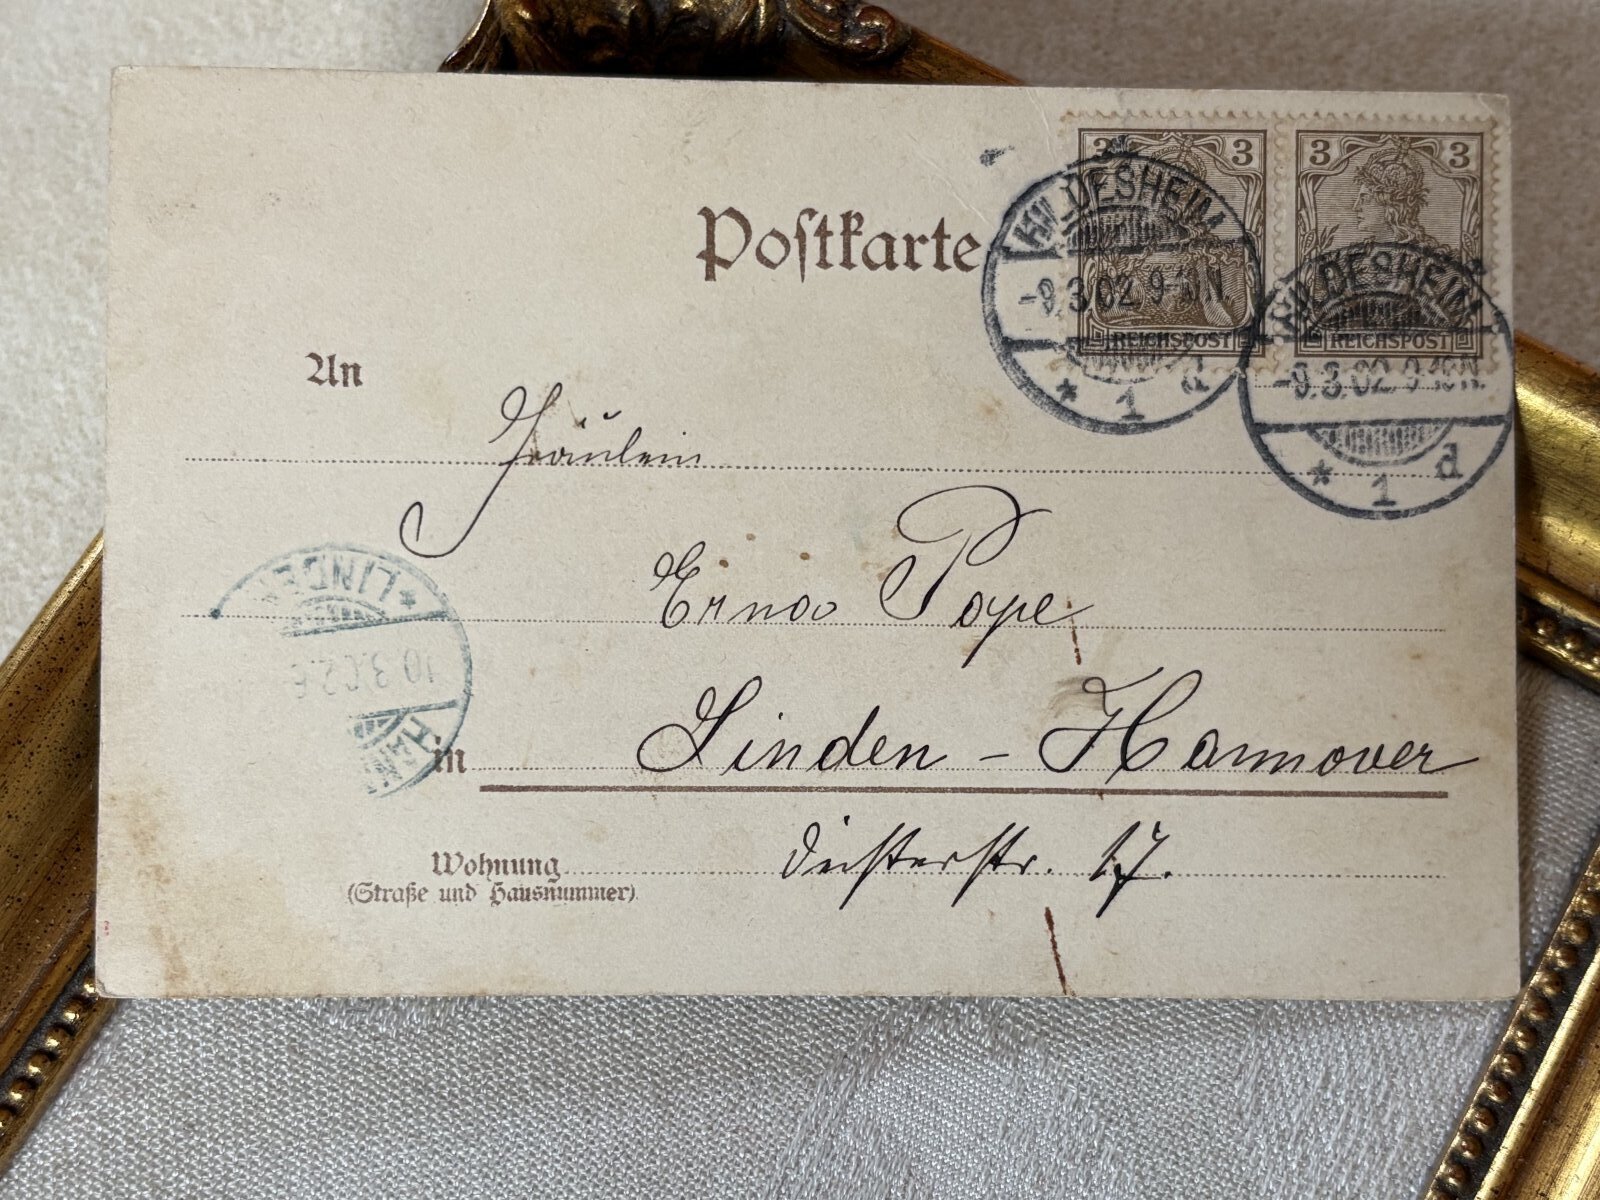 Postkarte
3 3
3 3
REICHSPOST
REICHSPOST
HILDESHEIM
-9.3.02. 9-10N.
* 1 d
HILDESHEIM
-9.3.02. 9-10N.
* 1 d
An
Fräulein
Erna Pope
in Linden - Hannover
Wohnung Deisterstr. 17.
(Straße und Hausnummer)
* LINDEN
10.3.02.
HANN